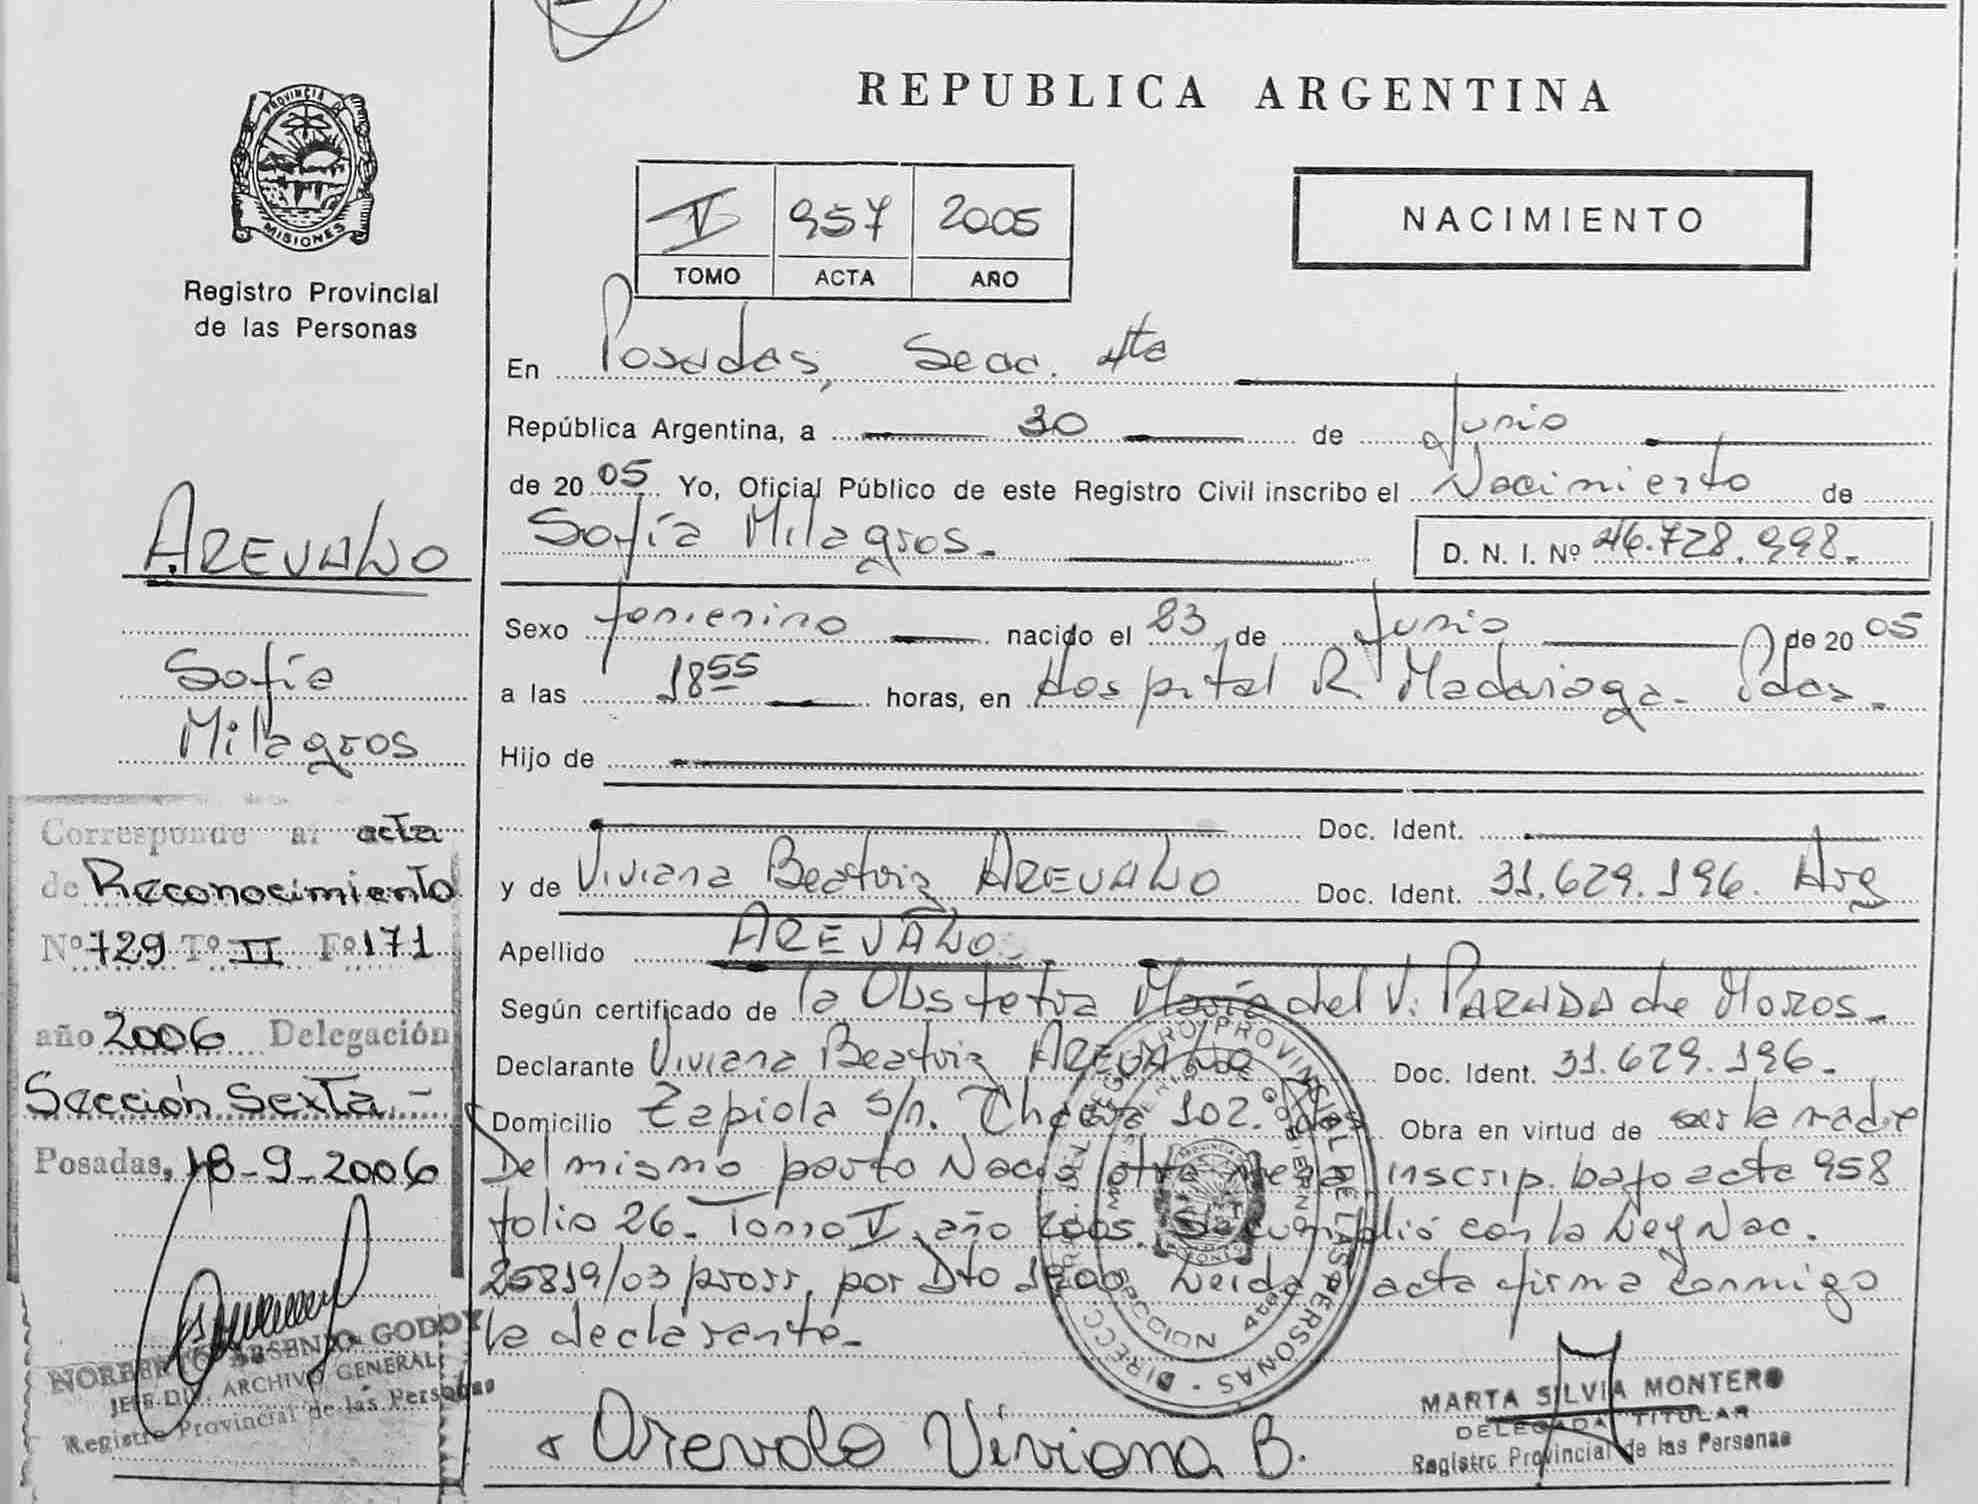 REPUBLICA ARGENTINA
PROVINCIA DE
MISIONES
Registro Provincial
de las Personas
V 957 2005
TOMO ACTA AÑO
NACIMIENTO
En Posadas, Secc. 4ta
República Argentina, a 30 de Junio
de 2005 Yo, Oficial Público de este Registro Civil inscribo el Nacimiento de
Sofía Milagros.- D. N. I. Nº 46.728.998.-
Sexo femenino nacido el 23 de Junio de 2005
a las 18 55 horas, en Hospital R. Madariaga- Pdas.-
Hijo de
Doc. Ident.
y de Viviana Beatriz AREVALO Doc. Ident. 31.629.196. Arg
Apellido AREVALO.
Según certificado de la Obstetra María del V. PARADA de Moros.-
Declarante Viviana Beatriz AREVALO Doc. Ident. 31.629.196.-
Domicilio Zapiola s/n. Chacra 102. Pdas. Obra en virtud de ser la madre
Del mismo parto Nació otra nena inscrip. bajo acta 958
folio 26.- Tomo V, año 2005. Se cumplió con la Ley Nac.
25819/03 prorr. por Dto Leida acta firma conmigo
la declarante.-
Arevalo Viviana B.
MARTA SILVIA MONTERO
DELEGADA TITULAR
Registro Provincial de las Personas
AREVALO
Sofía
Milagros
Corresponde al acta
de Reconocimiento
Nº 729 Tº II Fº 171
año 2006 Delegación
Sección Sexta.-
Posadas, 18-9-2006
NORBERTO ARSENIO GODOY
JEFE DIV. ARCHIVO GENERAL
Registro Provincial de las Personas
DIRECC. REGISTRO PROVINCIAL DE LAS PERSONAS
MINISTERIO DE GOBIERNO